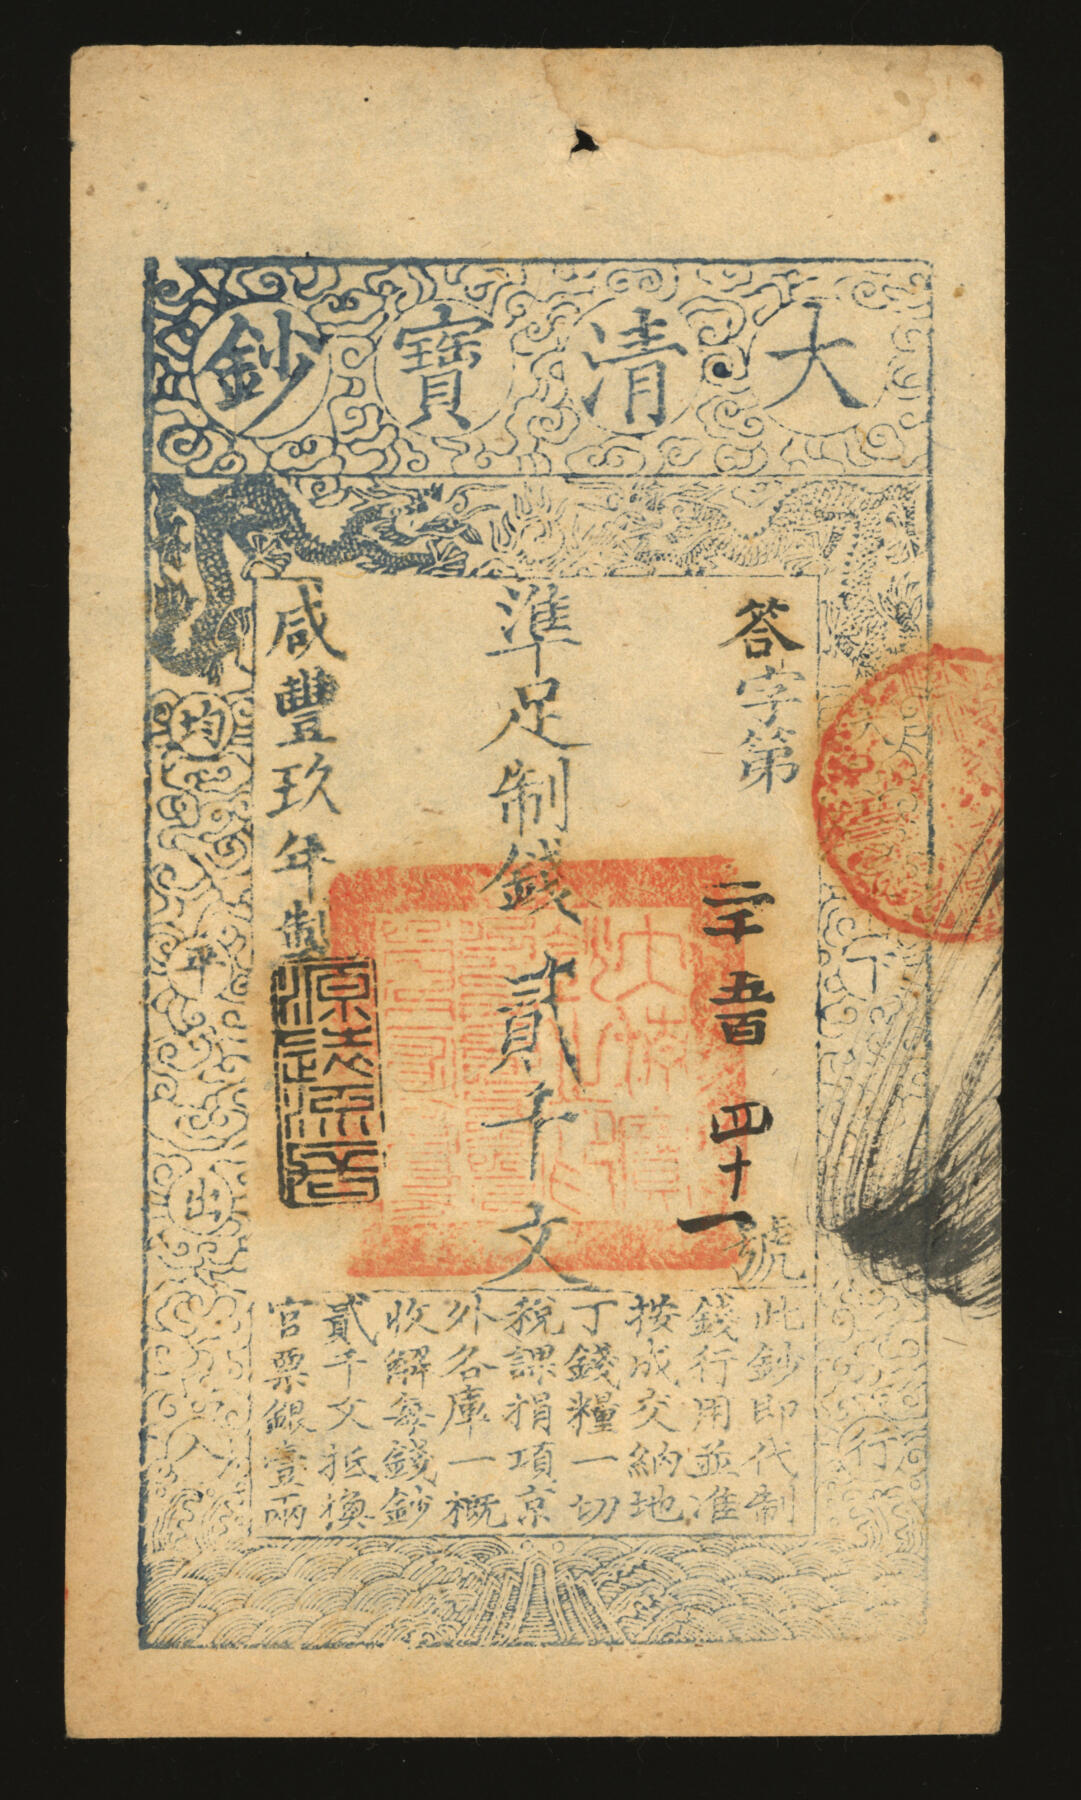 大清寶鈔
天下
行
答字第二千五百四十一號
準足制錢貳千文
咸豐玖年製
均平出入
此鈔即代制
錢行用並准
按成交納地
丁錢糧一切
稅課捐項京
外各庫一概
收解每錢鈔
貳千文抵換
官票銀壹兩